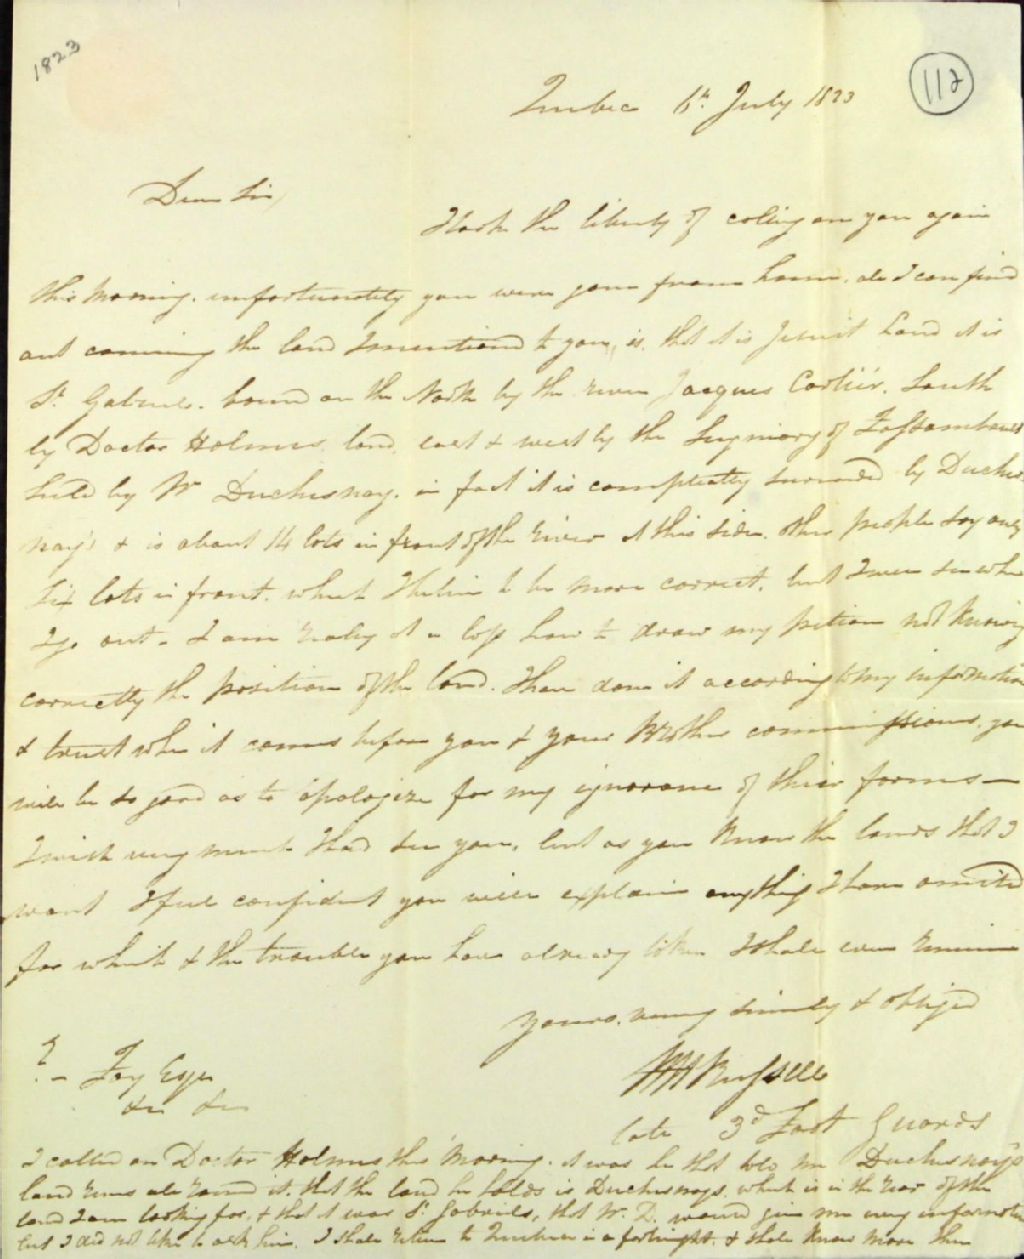 1823
112
Quebec 6th July 1823
Dear Sir,
I took the liberty of calling on you again
this Morning. unfortunately you were gone from home. all I can find
out concerning the land I mentioned to you, is that it is Jesuit Land it is
St Gabriel. bound on the North by the river Jacques Cartier. South
by Doctor Holmes land. east & west by the Seigniory of Fossambault
held by Mr Duchesnay. in fact it is completly surrounded by Duches
nay's & is about 14 lots in front of the river at this side. other people say only
six lots in front. which I believe to be more correct. but I will see when
I go out. I am realy at a loss how to draw my petition not knowing
correctly the position of the land. I have done it according to my information
& trust when it comes before you & your Brother commissioners. you
will be so good as to apologize for my ignorance of their forms —
I wish very much I had seen you. but as you know the lands that I
want I feel confident you will explain anything I have omitted
for which & the trouble you have already taken I shall ever remain
yours very sincerely & obliged
Russell
late 3d Foot Guards
Esqr
&c &c
I called on Doctor Holmes this Morning. it was he that told me Duchesnay's
land runs all round it. that the land he holds is Duchesnays. which is in the rear of the
land I am looking for, & that it was St Gabriels, that Mr. D. would give me every information
but I did not like to ask him. I shall return to Quebec in a fortnight & shall know more then